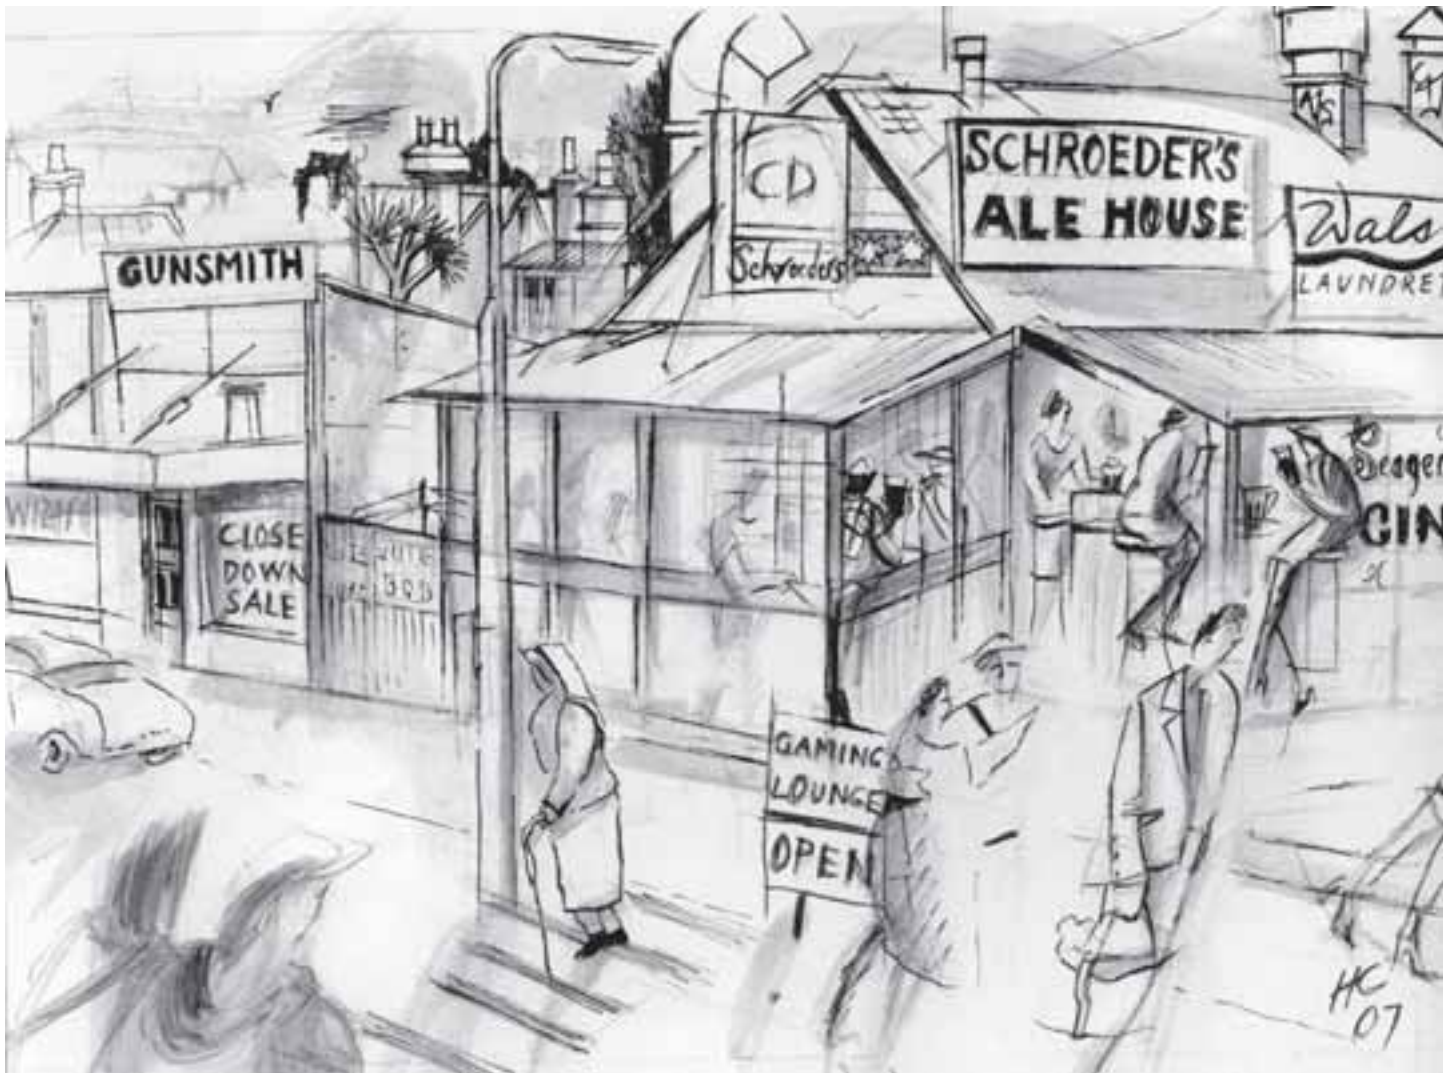 GUNSMITH
CLOSE
DOWN
SALE
CD
Schroeders
SCHROEDER'S
ALE HOUSE
NS
Wals
LAUNDRET
Seager
GIN
GAMING
LOUNGE
OPEN
HC
07